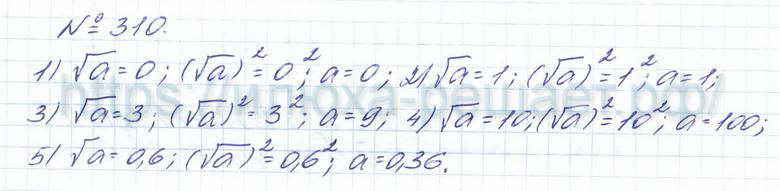 № 310.
1) √a = 0; (√a)² = 0²; a = 0; 2) √a = 1; (√a)² = 1²; a = 1;
3) √a = 3; (√a)² = 3²; a = 9; 4) √a = 10; (√a)² = 10²; a = 100;
5) √a = 0,6; (√a)² = 0,6²; a = 0,36.
https://илюха-решает.рф/